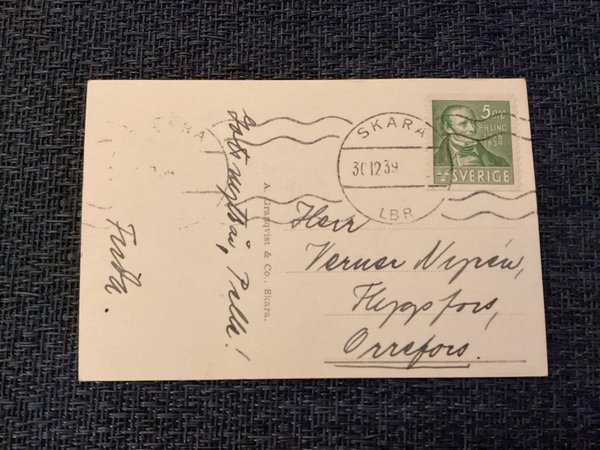 Gott nytt år, Pelle!
Frida.
A. Granqvist & Co., Skara.
SKARA
30.12.39
LBR
5 ÖRE
P.H. LING
1776
1839
SVERIGE
Herr
Verner Nyrén,
Flygsfors,
Orrefors.